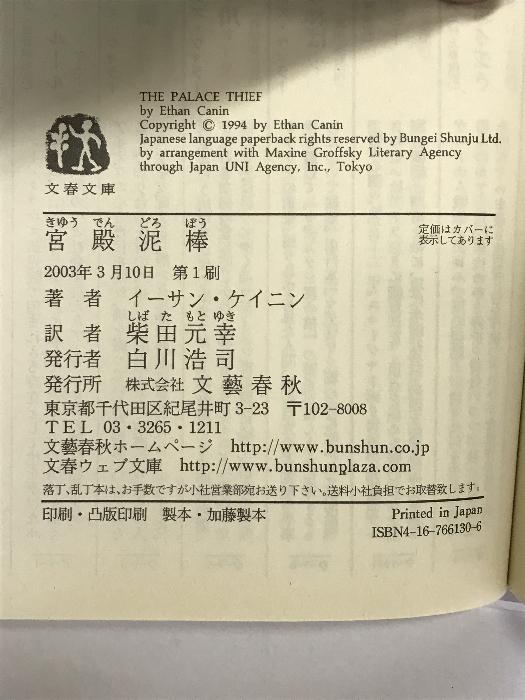 THE PALACE THIEF
by Ethan Canin
Copyright © 1994 by Ethan Canin
Japanese language paperback rights reserved by Bungei Shunju Ltd.
by arrangement with Maxine Groffsky Literary Agency
through Japan UNI Agency, Inc., Tokyo
文春文庫
きゆう でん どろ ぼう
宮殿泥棒
定価はカバーに
表示してあります
2003年3月10日 第1刷
著者 イーサン・ケイニン
しば た もと ゆき
訳者 柴田元幸
発行者 白川浩司
発行所 株式会社 文藝春秋
東京都千代田区紀尾井町3-23 〒102-8008
TEL 03・3265・1211
文藝春秋ホームページ http://www.bunshun.co.jp
文春ウェブ文庫 http://www.bunshunplaza.com
落丁、乱丁本は、お手数ですが小社営業部宛お送り下さい。送料小社負担でお取替致します。
印刷・凸版印刷 製本・加藤製本
Printed in Japan
ISBN4-16-766130-6